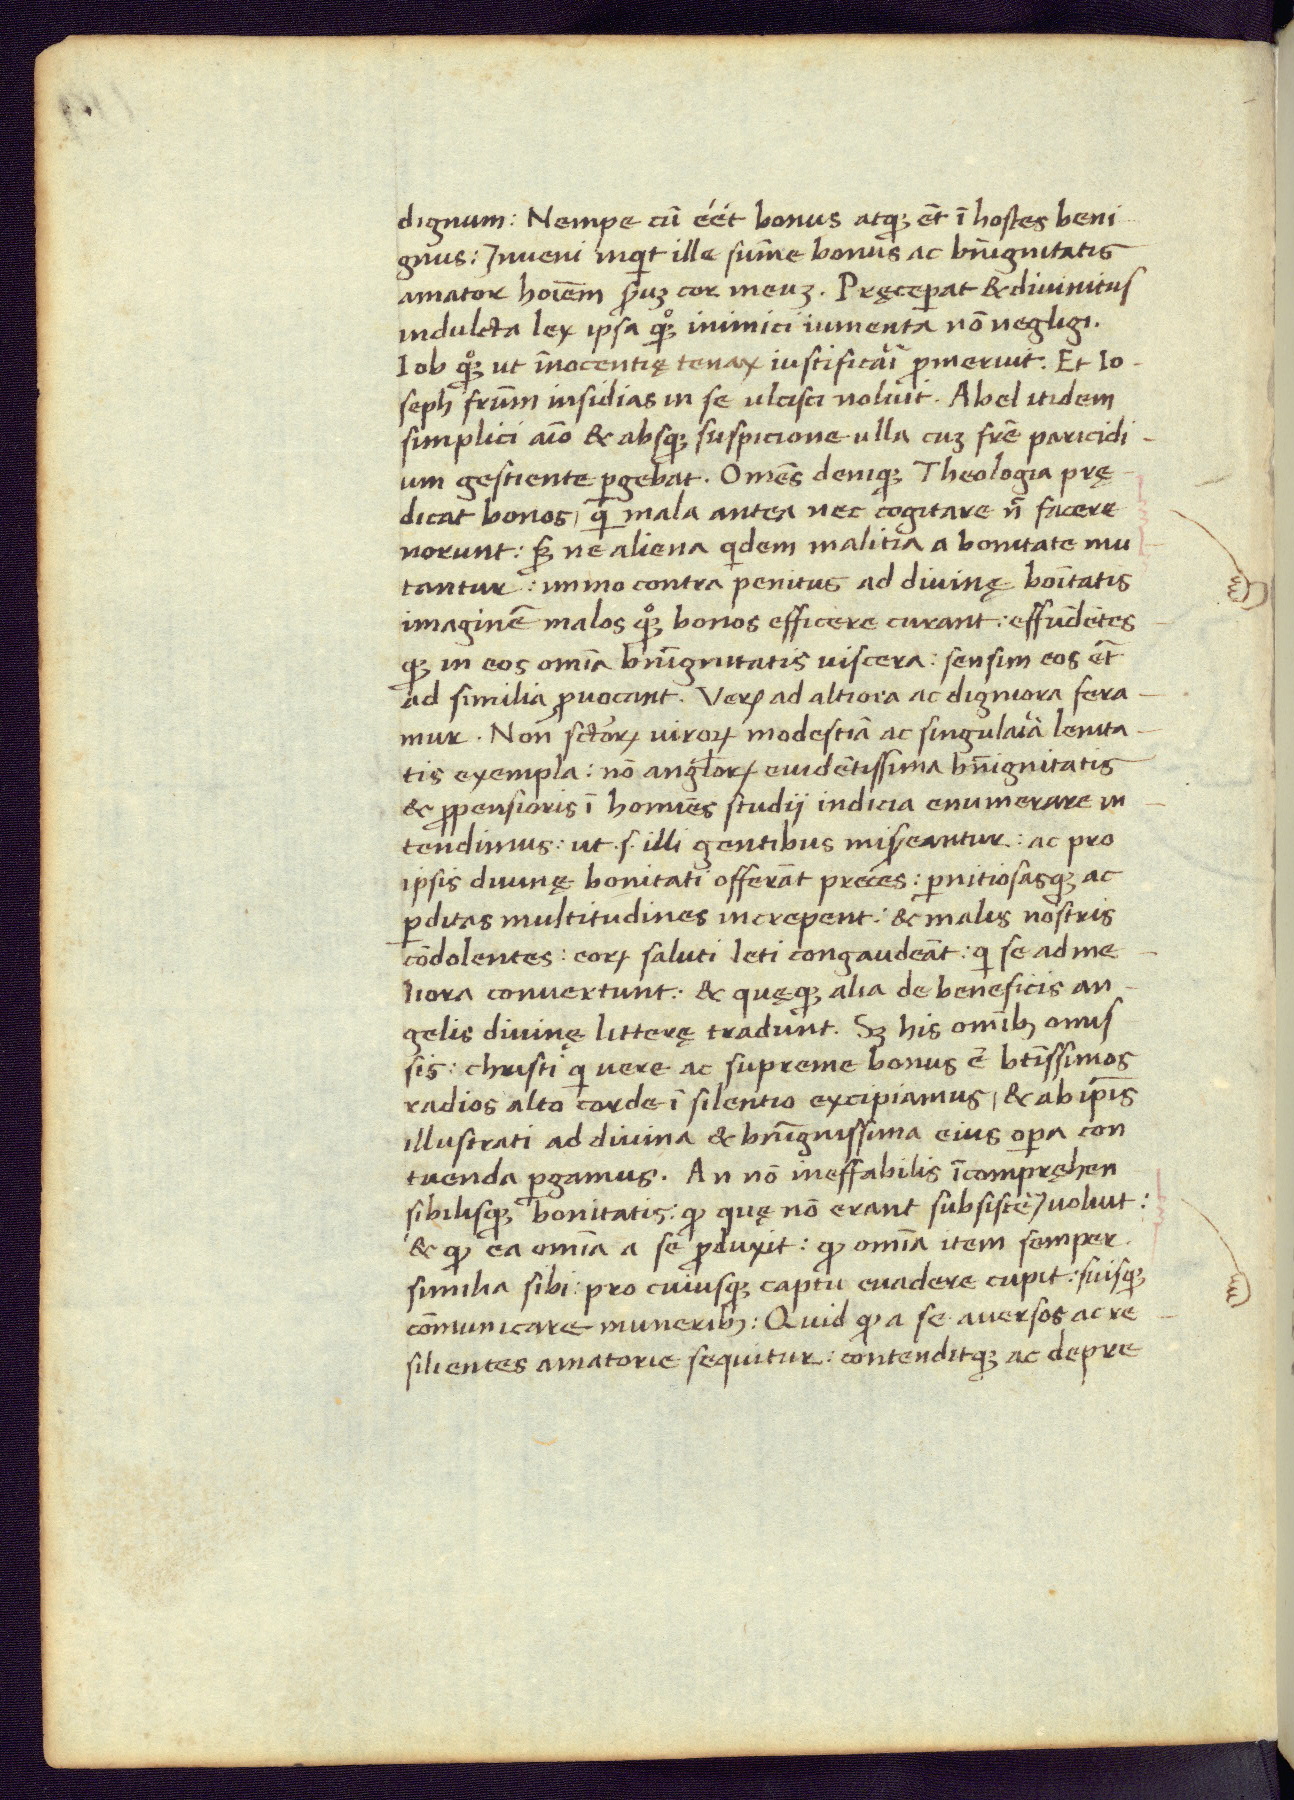 dignum: Nempe cū éét bonus atqꝫ ēt ī hostes beni-
gnus: Inueni inqͥt ille sūme bonus ac bn̄ignitatis
amator hoīem s̄uꝫ cor meuꝫ. Pręceꝑat & diuinitus
indulcta lex ipsa qͦꝫ inimici iumenta nō negligi.
Iob qͦꝫ ut īnocentię tenax iustificāi ꝓmeruit. Et Io-
seph frūm insidias in se ulcisci noluit. Abel itidem
simplici aīo & absqꝫ suspicione ulla cuꝫ frē paricidi-
um gestiente ꝑgebat. Omēs deniqꝫ Theologia prę-
dicat bonos, qͥ mala antea nec cogitare n̄ facere
norunt: sꝫ ne aliena qͥdem malitia a bonitate mu
tantur: immo contra penitus ad diuinę boītatis
imaginē malos qͦꝫ bonos efficere curant: effūdētes-
qꝫ in eos omīa bn̄ignitatis uiscera: sensim eos ēt
ad similia ꝓuocant. Veꝝ ad altiora ac digniora fera-
mur. Non sc̄toꝝ uiroꝝ modestiā ac singulaīā lenita-
tis exempla: nō angloꝝ euidētissima bn̄ignitatis
& ꝓpensioris ī homīes studij indicia enumerare in-
tendimus: ut .s. illi gentibus mis̄eantur: ac pro
ipsis diuinę bonitati offerāt preces: ꝑnitiosasqꝫ ac
ꝑditas multitudines increpent: & malis nostris
cōdolentes: eoꝝ saluti leti congaudeāt: qͥ se ad me-
liora conuertunt: & quęqꝫ alia de beneficis an-
gelis diuinę litterę tradunt. Sꝫ his omībꝫ omis
sis: christi qͥ uere ac supreme bonus ē btīssimos
radios alto corde ī silentio excipiamus, & ab ip̄is
illustrati ad diuina & bn̄ignissima eius oꝑa con
tuenda ꝑgamus. An nō ineffabilis īcompręhen
sibilisqꝫ bonitatis: ꝙ quę nō erant subsistē uoluit:
& ꝙ ea omīa a se ꝓduxit: ꝙ omīa item semper
similia sibi: pro cuiusqꝫ captu euadere cupit: suisqꝫ
cōmunicare muneribꝫ: Quid ꝙ a se auersos ac re-
silientes amatorie sequitur: contenditqꝫ ac depre